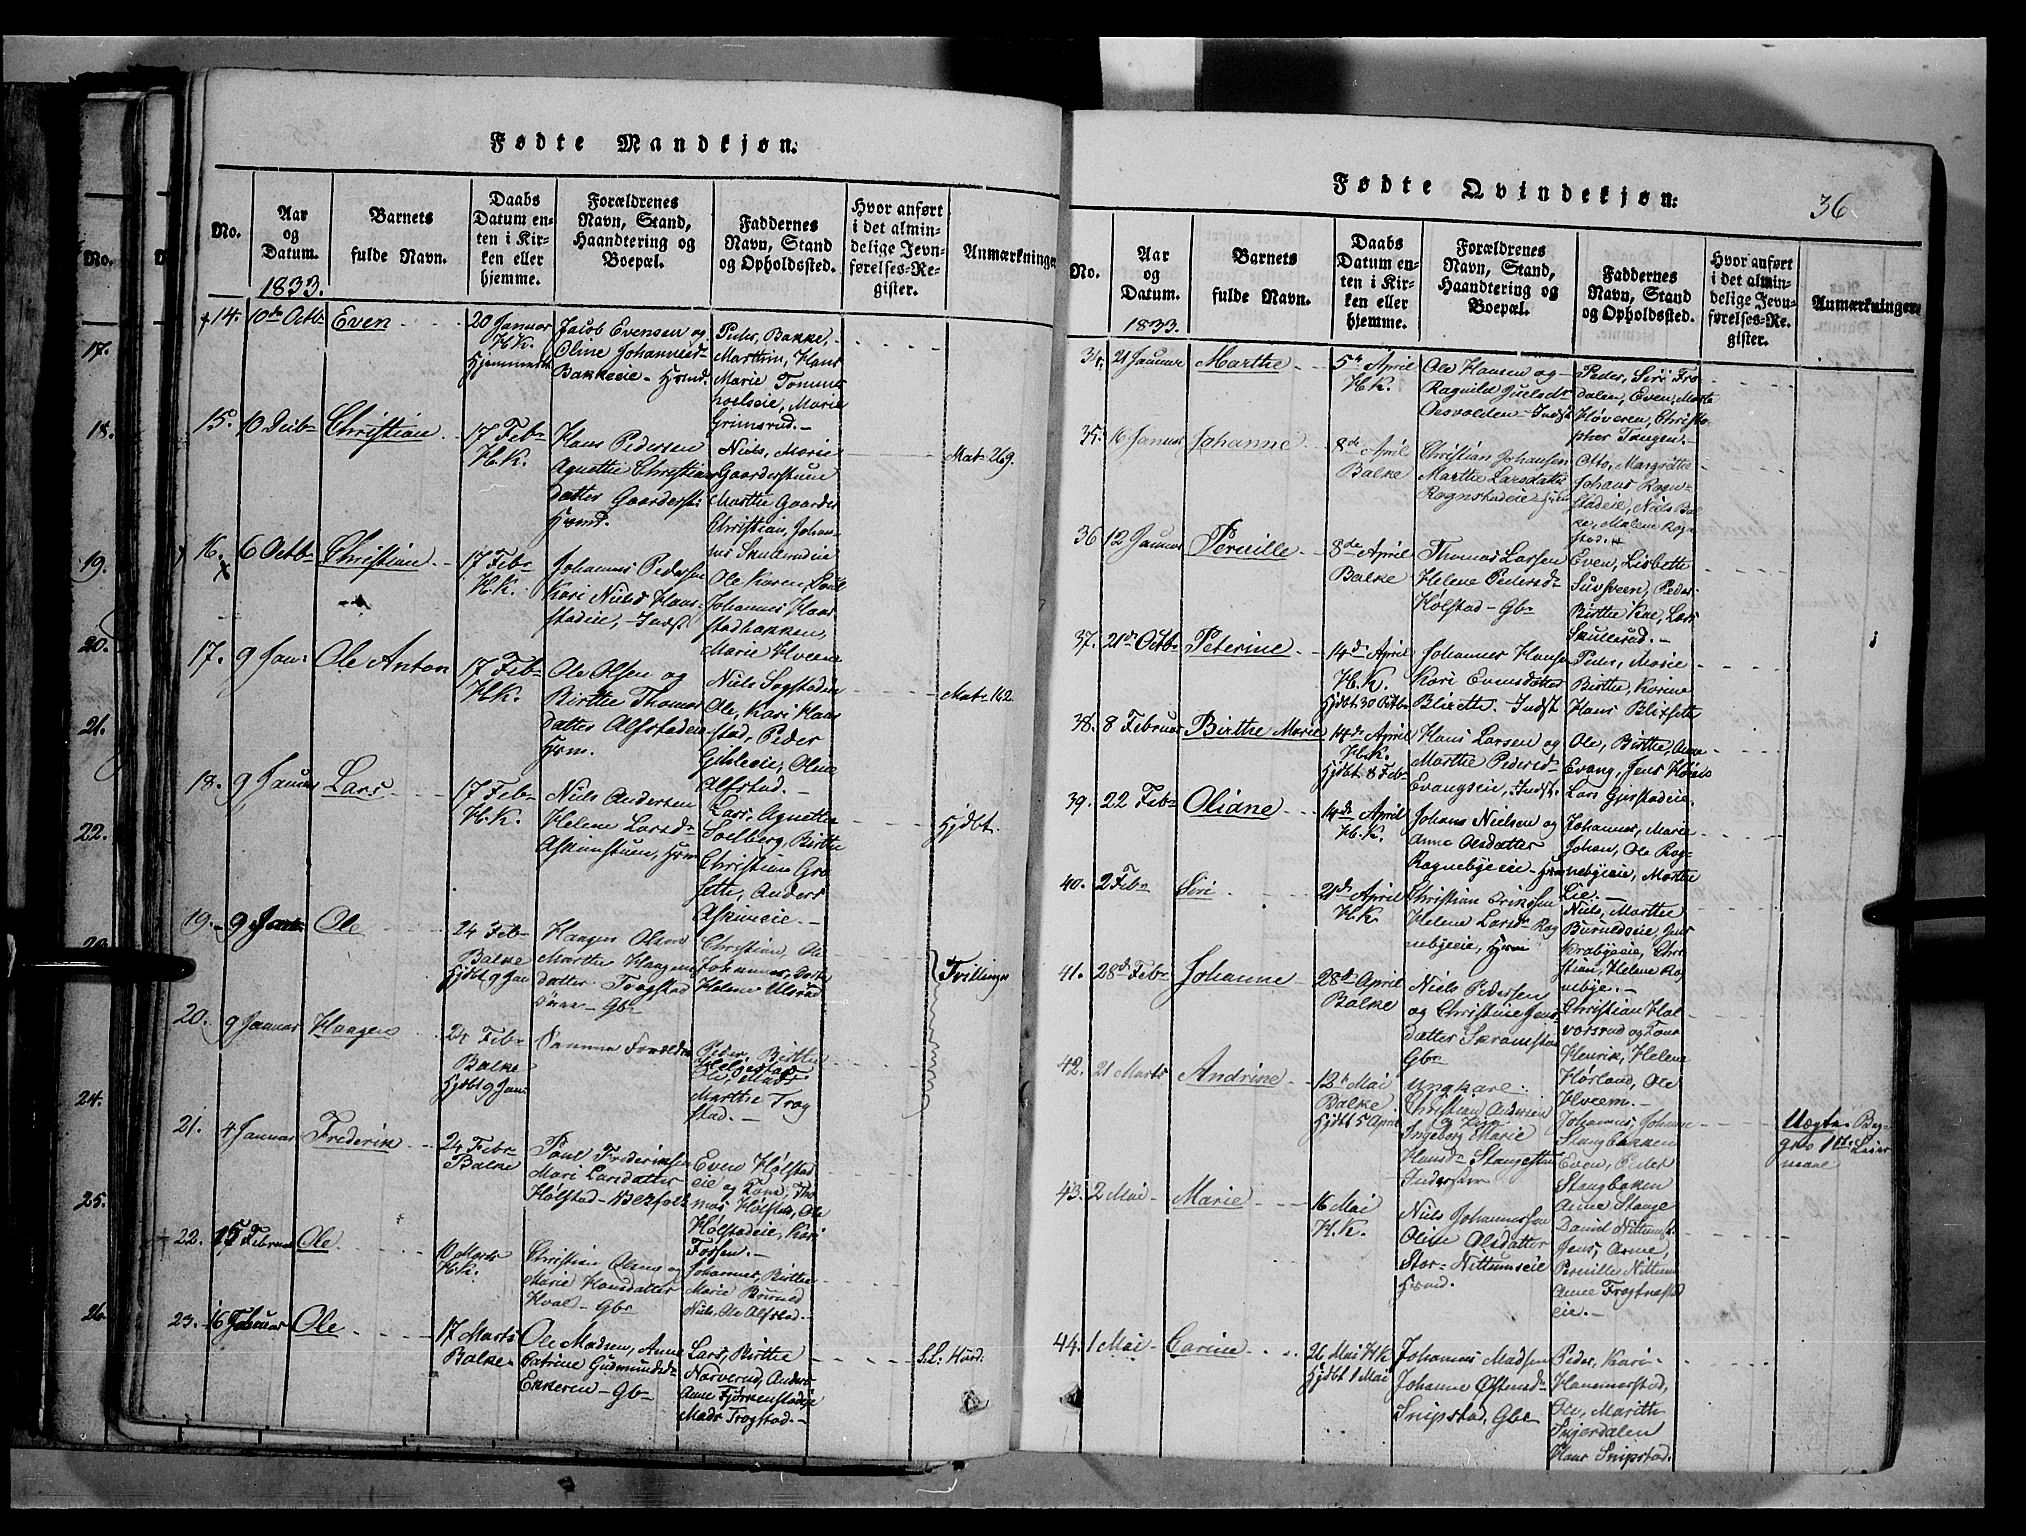 Fødte Mandkjøn.
No.
Aar
og
Datum.
1833.
Barnets
fulde Navn.
Daabs
Datum en-
ten i Kir-
ken eller
hjemme.
Forældrenes
Navn, Stand,
Haandtering og
Boepæl.
Faddernes
Navn, Stand
og Opholdssted.
Hvor anført
i det almin-
delige Jevn-
førelses-Re-
gister.
Anmærkninger
14. 10de Octb: Even
20 Januar
H.K.
Hjemmedt
Jacob Evensen og
Oline Johannesd
Bakkeeie - Hrmd.
Peder, Bakke,
Marthin, Hans
Marie Tomme
Marie
Grimsrud.-
15. 10 Deib- Christian
17 Feb-
H.K.
Hans Pedersen
Agnethe Christians
datter Gaarderst:
Hrmd.
Niels, Marie
Gaarderstuen
Marthe Gaarder
Christian, Johan-
nes
Mat- 269.
16. 6 Octb- Christian
17 Feb-
H.K.
Johannes Pedersen
Kari Niels Haar
stadeie, - Indst
Ole Karen, Poul
Johannes Haar
stadbakken,
Marie Hveem
17. 9 Jan: Ole Anton
17 Feb-
H.K.
Ole Olsen og
Birthe Thomas
datter Alfstadeie
Hrm.
Niels Sogstadeie
Ole, Kari Haar
stad, Peder
Gibleeie, Oline
Alfstad.-
Mat- 162
18. 9 Januar Lars
17 Feb-
H.K.
Niels Andersen
Helene Larsd-
Askimstuen, Hrm
Lars, Agnethe
Soelberg, Birthe
Christian Gro
sette, Anders
Askimeie.-
Hjdbt.
19. 9 Janr: Ole
24 Feb-
Balke
Hjdbt 9 Jan
Haagen Olsen
Marthe Haagens
datter Trogstad
- Gbr
Christian, Ole
Johannes,
Helene Ullsrud
Tvillinger
20. 9 Januar Haagen
24 Feb-
Balke
Hjdbt 9 Jan
Samme Forældre
Peder, Birthe
Helgestad
Ole, Mads
Marthe Trog
stad.-
21. 4 Januar Frederik
24 Febr
Balke
Poul Frederiksen
Mari Larsdatter
Hølstad-
Even Hølstad
eie og Kone, Tho
mas Hølstad, Ole
Hølstadeie, Kari
Fossen.-
22. 15 Februar Ole
10 Marts
H.K.
Christian Olsen og
Marie Hansdatter
Hval- Gbr
Johannes, Birthe
Marie
Niels, Ole Alfstad.-
23. 16 Februar Ole
17 Marts
Balke
Ole Madsen, Anne
Catrine Gudmundsd-
Ekkeren- Gb-
Lars, Birthe
Narverud, Anders
Anne Fjørkenstadeie
Mads Trogstad.-
17.
18.
19.
20.
21.
22.
23.
24.
25.
26.
Fødte Qvindekjøn.
36
No.
Aar
og
Datum.
1833.
Barnets
fulde Navn.
Daabs
Datum en-
ten i Kir-
ken eller
hjemme.
Forældrenes
Navn, Stand,
Haandtering og
Boepæl.
Faddernes
Navn, Stand
og Opholdssted.
Hvor anført
i det almin-
delige Jevn-
førelses-Re-
gister.
Anmærkninger
34. 21 Januar Marthe
5te April
H.K.
Ole Hansen og
Ragnild Juelsdr
Oesvolden- Indst
Peder, Siri Fro
dalen, Even, Marte
Høveren, Christo
pher Tangen.-
35. 16 Januar Johanne
8de April
Balke
Christian Johansen
Marthe Larsdatter
Rognstadeie
Otto, Margrethe
Johans Rogn-
stadeie, Niels Bal
ke, Malene Rogn
stad.
36 12 Januar Pernille
8de April
Balke
Thomas Larsen
Helene Pedersd-
Hølstad- Gbr
Even, Lisbeth
Suvsveen, Peder
Birthe Kae, Lars
Skullerud.-
37. 21de Octb- Peterine
14de April
H.K.
Hjdbt 30 Octb-
Johannes Hansen
Kari Evensdatter
Indst
Peder, Marie
Birthe, Karine
Hans Blixsete
38. 8 Februar Birthe Marie
14de April
H.K.
Hjdbt 8 Feb-
Hans Larsen og
Marthe Pedersd-
Evangseie, Indst.
Ole, Birthe, Anne
Evang, Jens
Lars Gjestadeie
39. 22 Feb- Oliane
14de April
H.K.
Johans Nielsen og
Anne Olsdatter
Rognebyeeie-
Johannes, Marie
Johan, Ole Rog-
nebyeie, Marthe
Lie.-
40. 2 Feb- Siri
21de April
H.K.
Christian Eriksen
Helene Larsd- Rog
nebyeie, Hrm
Niels, Marthe
Buruldseie, Jens
Krabyeie, Chri
stian, Helene Ro
gnebye.-
41. 28de Feb- Johanne
28de April
Balke
Niels Pedersen
og Christine Jens
datter Skramstad
Gbr
Christian Hal
vorsrud og Kone
Henrik, Helene
Hørland, Ole
Hveem.
42. 21 Marts Andrine
12te Mai
Balke
Hjdbt 5 April
Ungkarl
Christian Andersen
og Pige
Ingeborg Marie
Hansd- Stangestuen
Inderster
Johannes, Johanne
Stangbakken
Even, Peder
Stangbaken
Anne Stange
Uægte. Beg-
ges 1ste Leier
maal
43. 2 Mai- Marie
16 Mai
H.K.
Niels Johannessen
Oline Olsdatter
Stor- Nittumseie
Hrmd.
David Nittumst.
Jens, Anne,
Pernille Nittum
Anne Trogtvæst
eie.-
44. 1 Mai- Carine
26 Mai H.K
Hjdbt 1 Mai
Johannes Madsen
Johanne Østensd-
Snipstad, Gbr-
Peder, Kari-
Hammerstad,
Ole, Marith
Snjerdalen
Hans Snipstad.